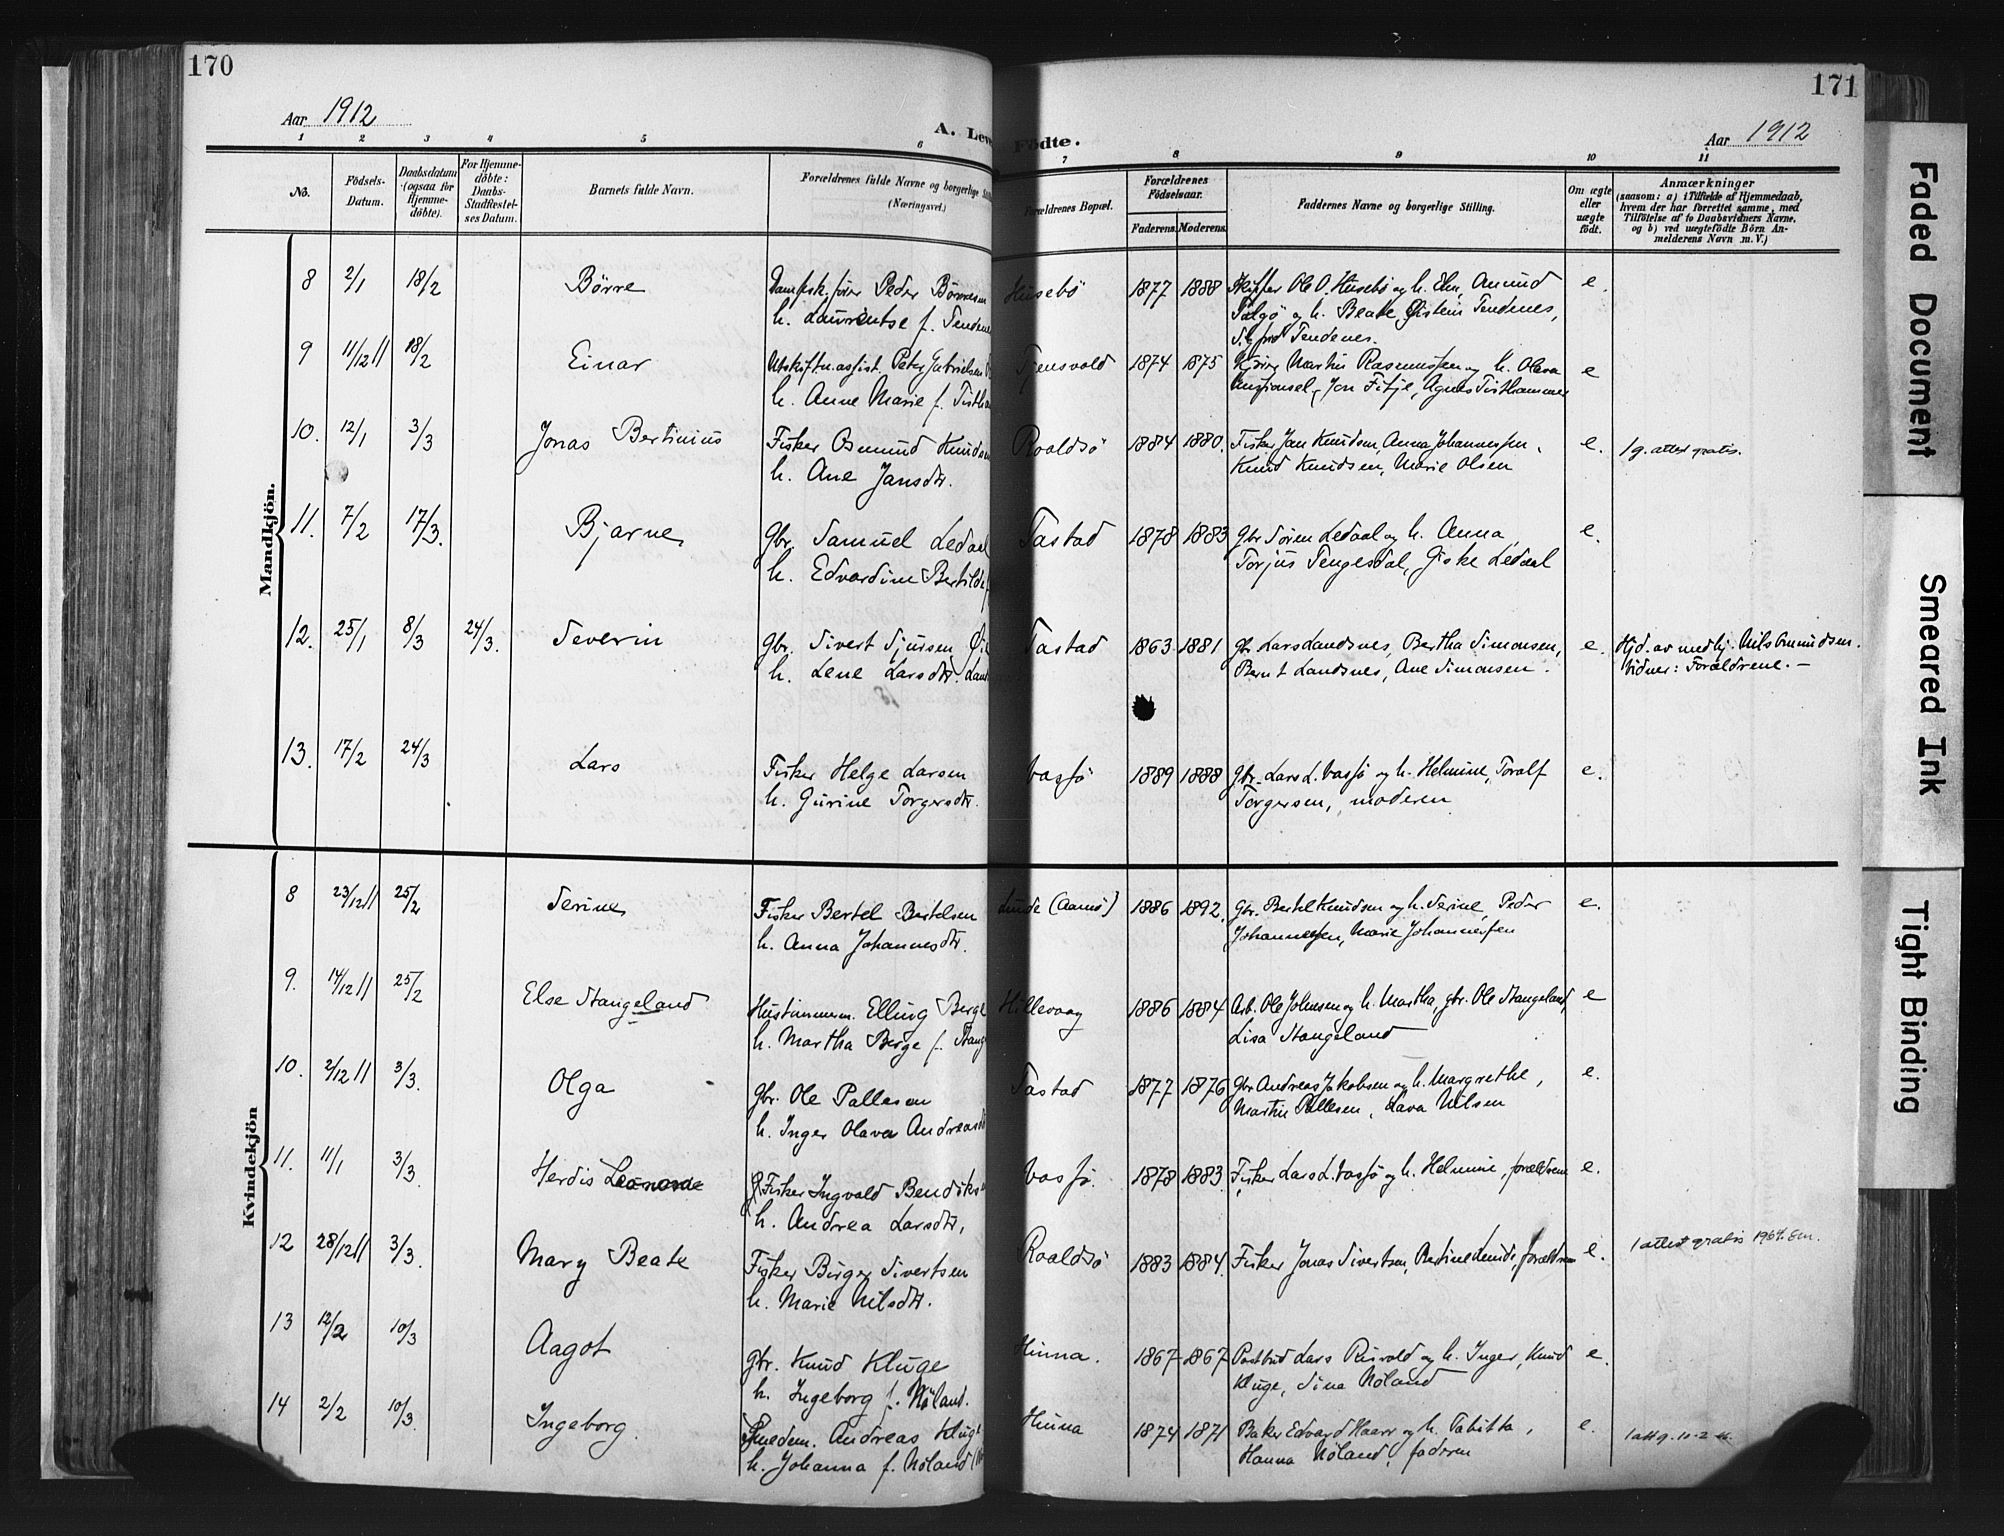 170
171
Aar 1912
A. Lev
Födte.
Aar 1912
1 2 3 4 5 6 7 8 9 10 11
No.
Födsels-
Datum.
Daabsdatum
(ogsaa for
Hjemme-
døbte).
For Hjemme-
døbte:
Daabs-
Stadfæstel-
ses Datum.
Barnets fulde Navn.
Forældrenes fulde Navne og borgerlige
(Næringsvei.)
Forældrenes Bopæl.
Forældrenes
Födselsaar.
Faderens. Moderens.
Faddernes Navne og borgerlige Stilling.
Om ægte
eller
uægte
født.
Anmærkninger
(saasom: a) i Tilfælde af Hjemmedaab,
hvem der har forrettet samme, med
Tilföielse af to Daabsvidners Navne,
og b) ved uægtefödte Börn An-
melderens Navn m. V.)
Mandkjön.
8 2/1 18/2 Börre Peder Husebö 1877 1888 Skipper Ole O. Husebö og h. Amund e.
h. Laurentse f. og h. Beate, Öistein Tendenes,
Tendenes.
9 11/12 11 18/2 Einar Peter Gabrielsen Tjensvold 1874 1875 Martin Rasmussen og h. Olava e
h. Anne Marie f. Jon Fitje, Agnes
10. 12/1 3/3 Jonas Bertinius Fisker Osmund Knudsen Roaldsö 1884 1880. Fisker Jan Knudsen, Anna Johannessen, e. 1 g. attest gratis.
h. Ane Jansdtr. Knud Knudsen, Marie Olsen
11. 7/2 17/3. Bjarne Gbr. Samuel Ledaal Tastad 1878 1883 Gbr Sören Ledaal og h. Anna, e.
h. Edvardine Bertilde Torjus Tengesdal, Giske Ledaal
12. 25/1 8/3 24/3. Severin Gbr. Sivert Sjursen Tastad 1863 1881 Gbr Lars Landsnes, Bertha Simonsen, e. Hjd. av medhj. Nils Omundsen.
h. Lene Larsdtr. Bernt Landsnes, Ane Simonsen. Vidner: Forældrene. –
13. 17/2 24/3 Lars Fisker Helge Larsen Vassö 1889 1888 Gbr. Lars L. Vassö og h. Helmine, Toralf e.
h. Gurine Torgersdtr. Torgersen, moderen
Kvindekjön
8 23/12 11 25/2 Serine Fisker Bertel Bertelsen Lunde (Aamö) 1886 1892. Gbr. Bertel Knudsen og h. Serine, Peder e.
h. Anna Johannesdtr. Johannessen, Marie Johannessen
9. 14/12 11 25/2 Else Stangeland Hustømmerm. Elling Berge Hillevaag 1886 1884 Arb. Ole Johnsen og h. Martha, gbr. Ole Stangeland, e
h. Martha Berge f. Stang Lisa Stangeland
10. 2/12 11 3/3. Olga Gbr. Ole Pallesen Tastad 1877 1876 Gbr Andreas Jakobsen og h. Margrethe, e.
h. Inger Olava Andreasdt Martin Pallesen, Lava Nilsen
11. 11/1 3/3. Herdis Leonarde Fisker Ingvald Bendiks Vassö. 1878 1883 Fisker Lars L. Vassö og h. Helmine, forældrene e.
h. Andrea Larsdtr,
12 28/12 11 3/3. Mary Beate Fisker Birger Sivertsen Roaldsö 1883 1884. Fisker Jonas Sivertsen, Bertine Lunde, forældrene e. 1 attest gratis 1964.
h. Marie Nilsdtr.
13 12/2 10/3 Aagot Gbr. Knud Kluge Hinna. 1867 1867 Postbud Lars Risvold og h. Inger, Knud e.
h. Ingeborg f. Nöland. Kluge, Sina Nöland
14 2/2 10/3. Ingeborg. Smedem. Andreas Kluge Hinna 1874 1871 Baker Edvard Haarr og h. Tabitta, e.
h. Johanna f. Nöland Hanna Nöland, faderen
Faded Document
Smeared Ink
Tight Binding